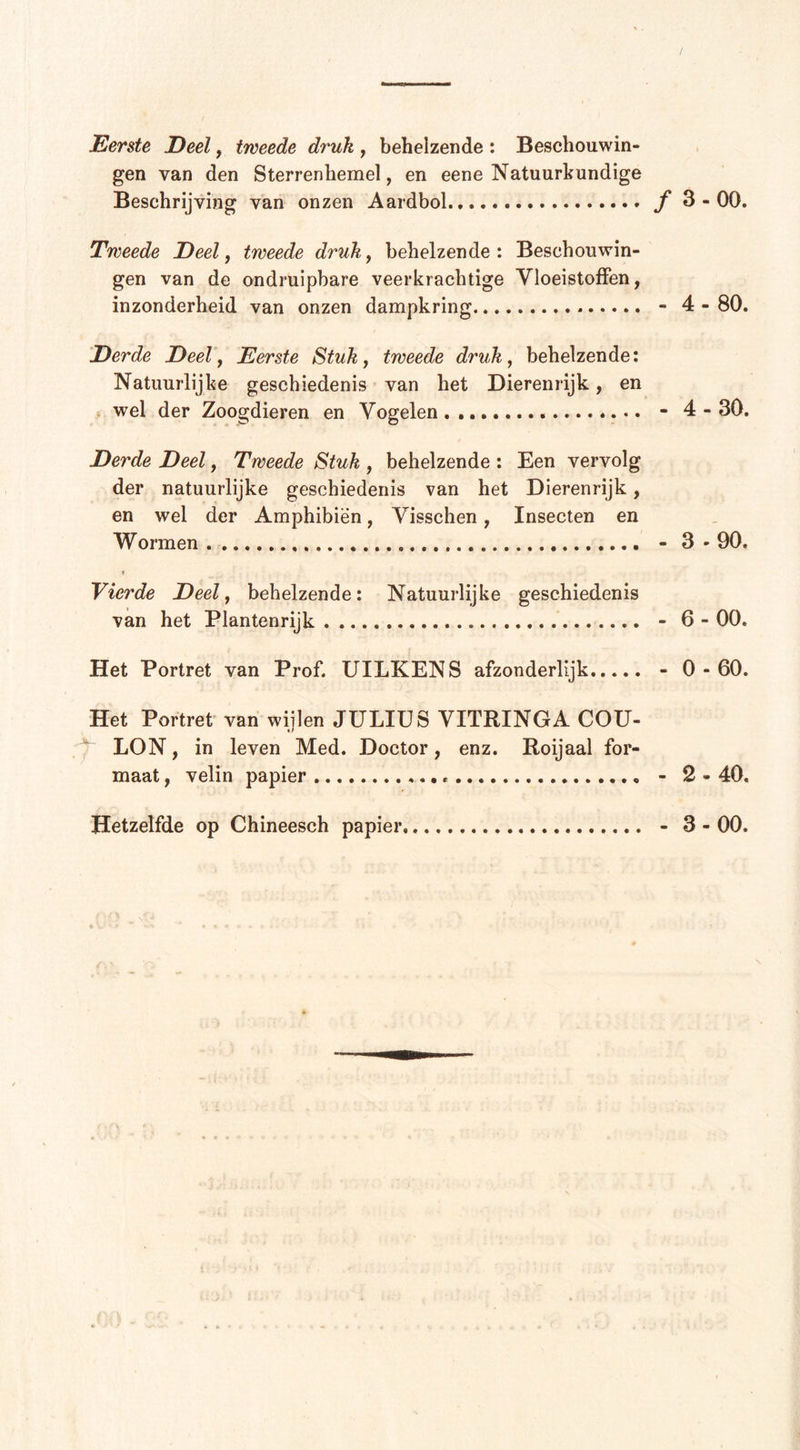 Eerste Deel, tweede druk, behelzende: Beschouwin-
gen van den Sterrenhemel, en eene Natuurkundige
Beschrijving van onzen Aardbol.................. ƒ 3 - 00.
Tweede Deel, tweede druk, behelzende: Beschouwin-
gen van de ondruipbare veerkrachtige Vloeistoffen,
inzonderheid van onzen dampkring................ - 4 - 80.
Derde Deel, Eerste Stuk, tweede druk, behelzende:
Natuurlijke geschiedenis van het Dierenrijk, en
wel der Zoogdieren en Vogelen.................. - 4 - 30.
Derde Deel, Tweede Stuk, behelzende: Een vervolg
der natuurlijke geschiedenis van het Dierenrijk,
en wel der Amphibiën, Visschen, Insecten en
Wormen.................................... - 3 - 90.
Vierde Deel, behelzende: Natuurlijke geschiedenis
van het Plantenrijk........................... - 6 - 00.
Het Portret van Prof. UILKENS afzonderlijk..... - 0 - 60.
Het Portret van wijlen JULIUS VITRINGA COU-
LON, in leven Med. Doctor, enz. Roijaal for-
maat, velin papier............................ - 2 - 40.
Hetzelfde op Chineesch papier..................... - 3 - 00.